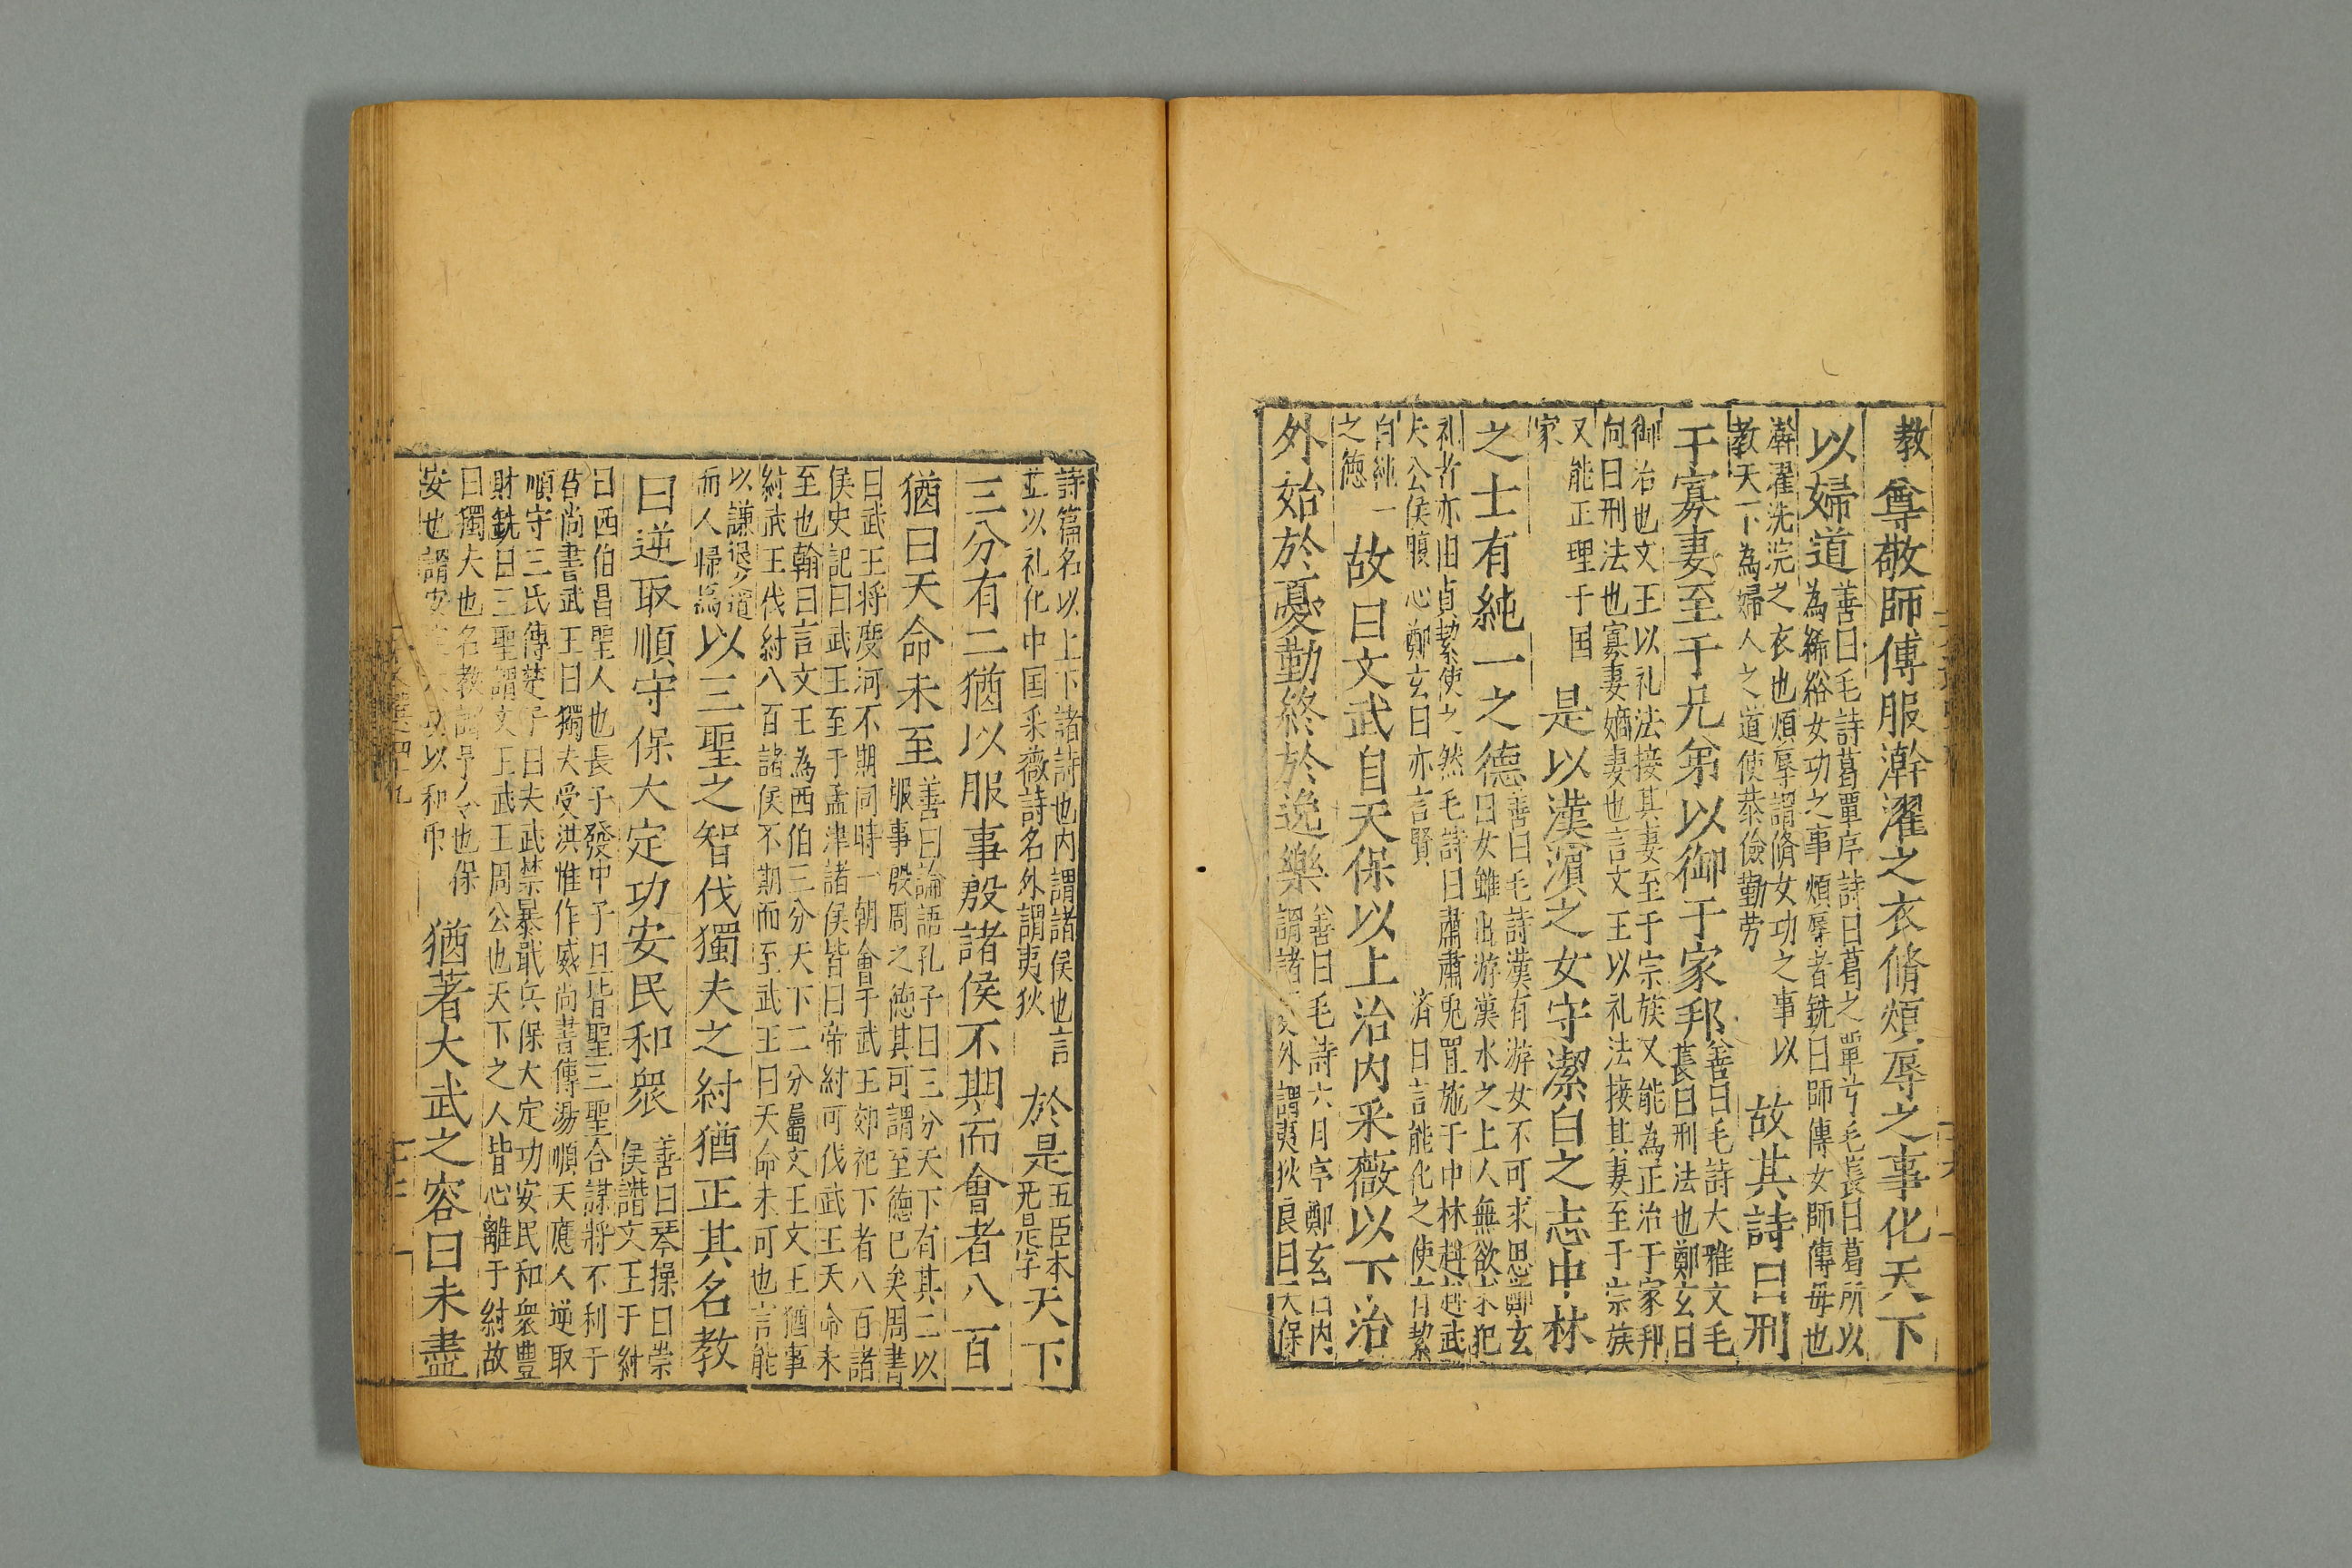 教尊敬師傅服澣濯之衣脩煩辱之事化天下
以婦道善曰毛詩葛覃序詩曰葛之覃兮毛萇曰葛所以
為絺綌女功之事煩辱者銑曰師傅女師傅毋也
澣濯洗浣之衣也煩辱謂脩女功之事以
教天下為婦人之道使恭儉勤劳
故其詩曰刑
于寡妻至于兄弟以御于家邦善曰毛詩大雅文毛
萇曰刑法也鄭玄曰
御治也文王以礼法接其妻至于宗族又能為正治于家邦
向曰刑法也寡妻嫡妻也言文王以礼法接其妻至于宗族
又能正理于国
家
是以漢濱之女守潔白之志中林
之士有純一之德善曰毛詩漢有游女不可求思鄭玄
曰女雖出游漢水之上人無欲求犯
礼者亦由貞絜使之然毛詩曰肅肅兎罝施于中林赳赳武
夫公侯腹心鄭玄曰亦言賢
済曰言能化之使有絜
白純一
之徳
故曰文武自天保以上治内采薇以下治
外始於憂勤終於逸樂善曰毛詩六月序鄭玄曰内
謂諸夏外謂夷狄良曰天保
詩篇名以上下諸詩也内謂諸侯也言
並以礼化中国采薇詩名外謂夷狄
於是五臣本
无是字天下
三分有二猶以服事殷諸侯不期而會者八百
猶曰天命未至善曰論語孔子曰三分天下有其二以
服事殷周之徳其可謂至德已矣周書
曰武王将度河不期同時一朝會于武王郊祀下者八百諸
侯史記曰武王至于孟津諸侯皆曰帝紂可伐武王天命未
至也翰曰言文王為西伯三分天下二分屬文王文王猶事
紂武王伐紂八百諸侯不期而至武王曰天命未可也言能
以謙退之道
而人帰焉
以三聖之智伐獨夫之紂猶正其名教
曰逆取順守保大定功安民和衆善曰琴操曰崇
侯譖文王于紂
曰西伯昌聖人也長子發中子旦皆聖三聖合謀将不利于
君尚書武王曰獨夫受洪惟作威尚書傳湯順天應人逆取
順守三氏傳楚子曰夫武禁暴戢兵保大定功安民和衆豊
財銑曰三聖謂文王武王周公也天下之人皆心離于紂故
曰獨夫也名教謂号令也保
安也謂安
猶著大武之容曰未盡